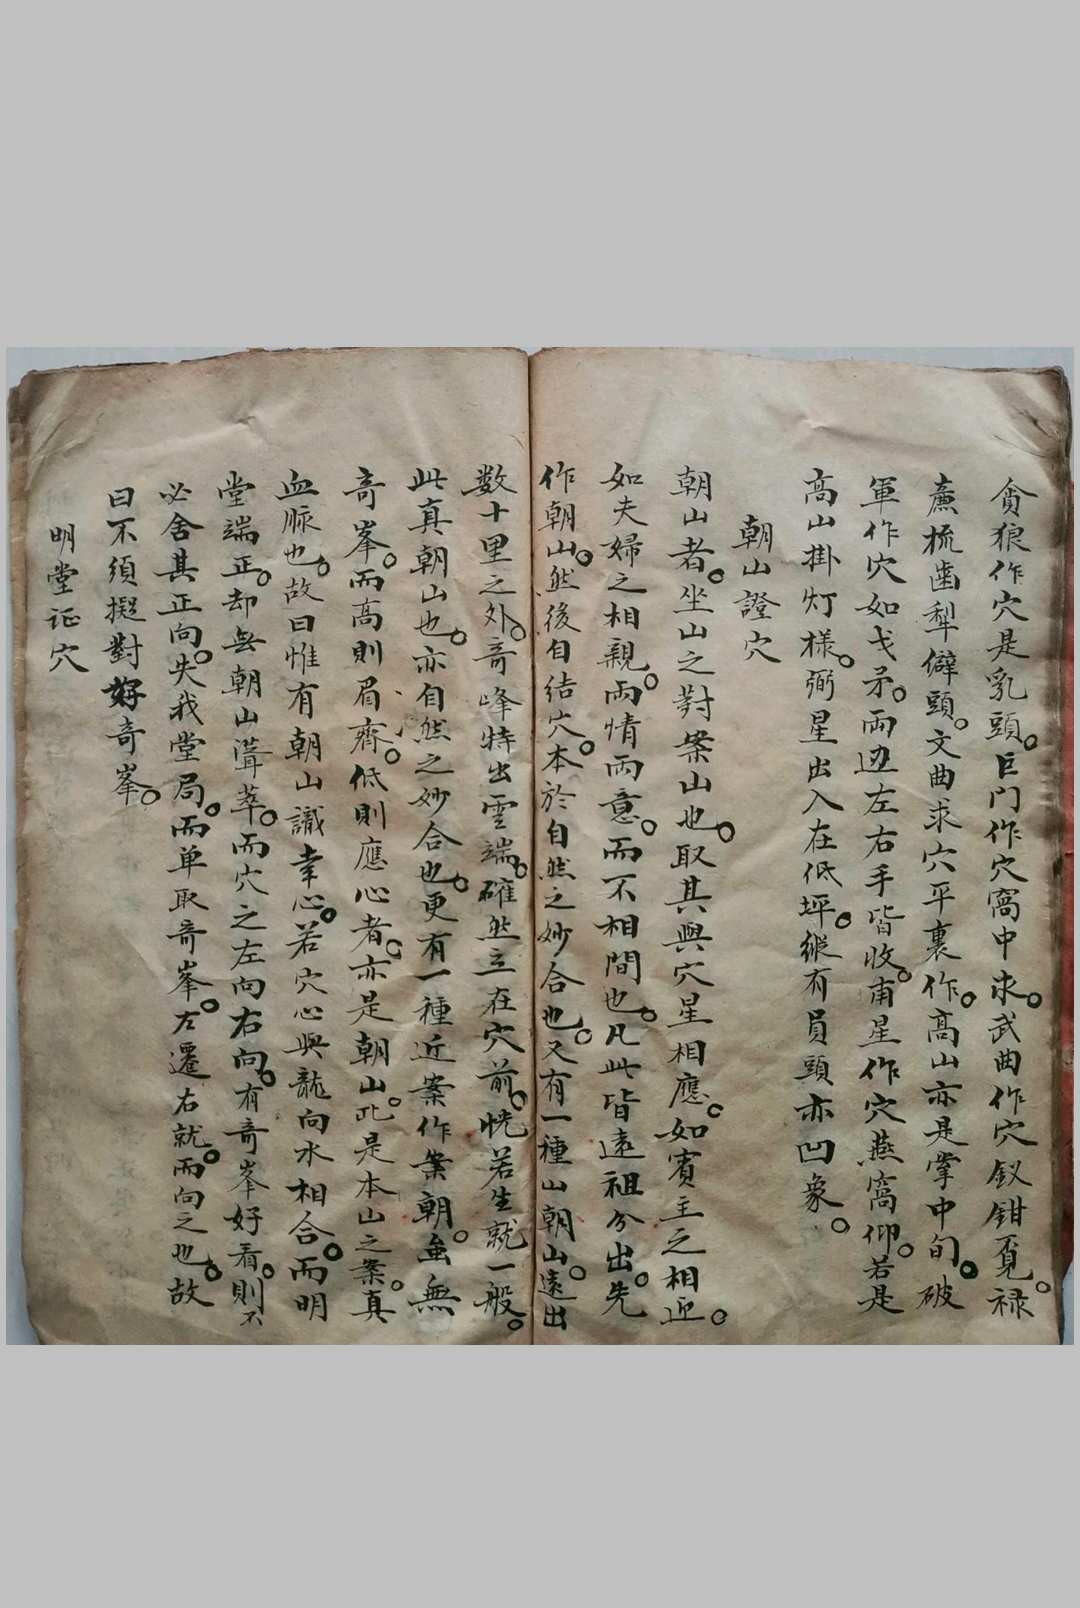 貪狼作穴是乳頭。巨門作穴窩中求。武曲作穴釵鉗覓。禄
廉梳齒犁僻頭。文曲求穴平裏作。高山亦是掌中旬。破
軍作穴如戈矛。兩边左右手皆收。甫星作穴燕窩仰。若是
高山掛灯樣。弼星出入在低坪。縱有員頭亦凹象。
朝山證穴
朝山者。坐山之對案山也。取其與穴星相應。如賓主之相迎。
如夫婦之相親。兩情兩意。而不相間也。凡此皆遠祖分出。先
作朝山。然後自結穴。本於自然之妙合也。又有一種山朝山。遠出
数十里之外。奇峰特出雲端。確然立在穴前。恍若生就一般。
此真朝山也。亦自然之妙合也。更有一種近案作案朝。虽無
奇峯。而高則眉齊。低則應心者。亦是朝山。此是本山之案真
血脉也。故曰惟有朝山識幸心。若穴心與龍向水相合。而明
堂端正。却無朝山聳萃。而穴之左向右向。有奇峯好看。則不
必舍其正向。失我堂局。而单取奇峯。左遷右就。而向之也。故
曰不須擬對好奇峯。
明堂证穴